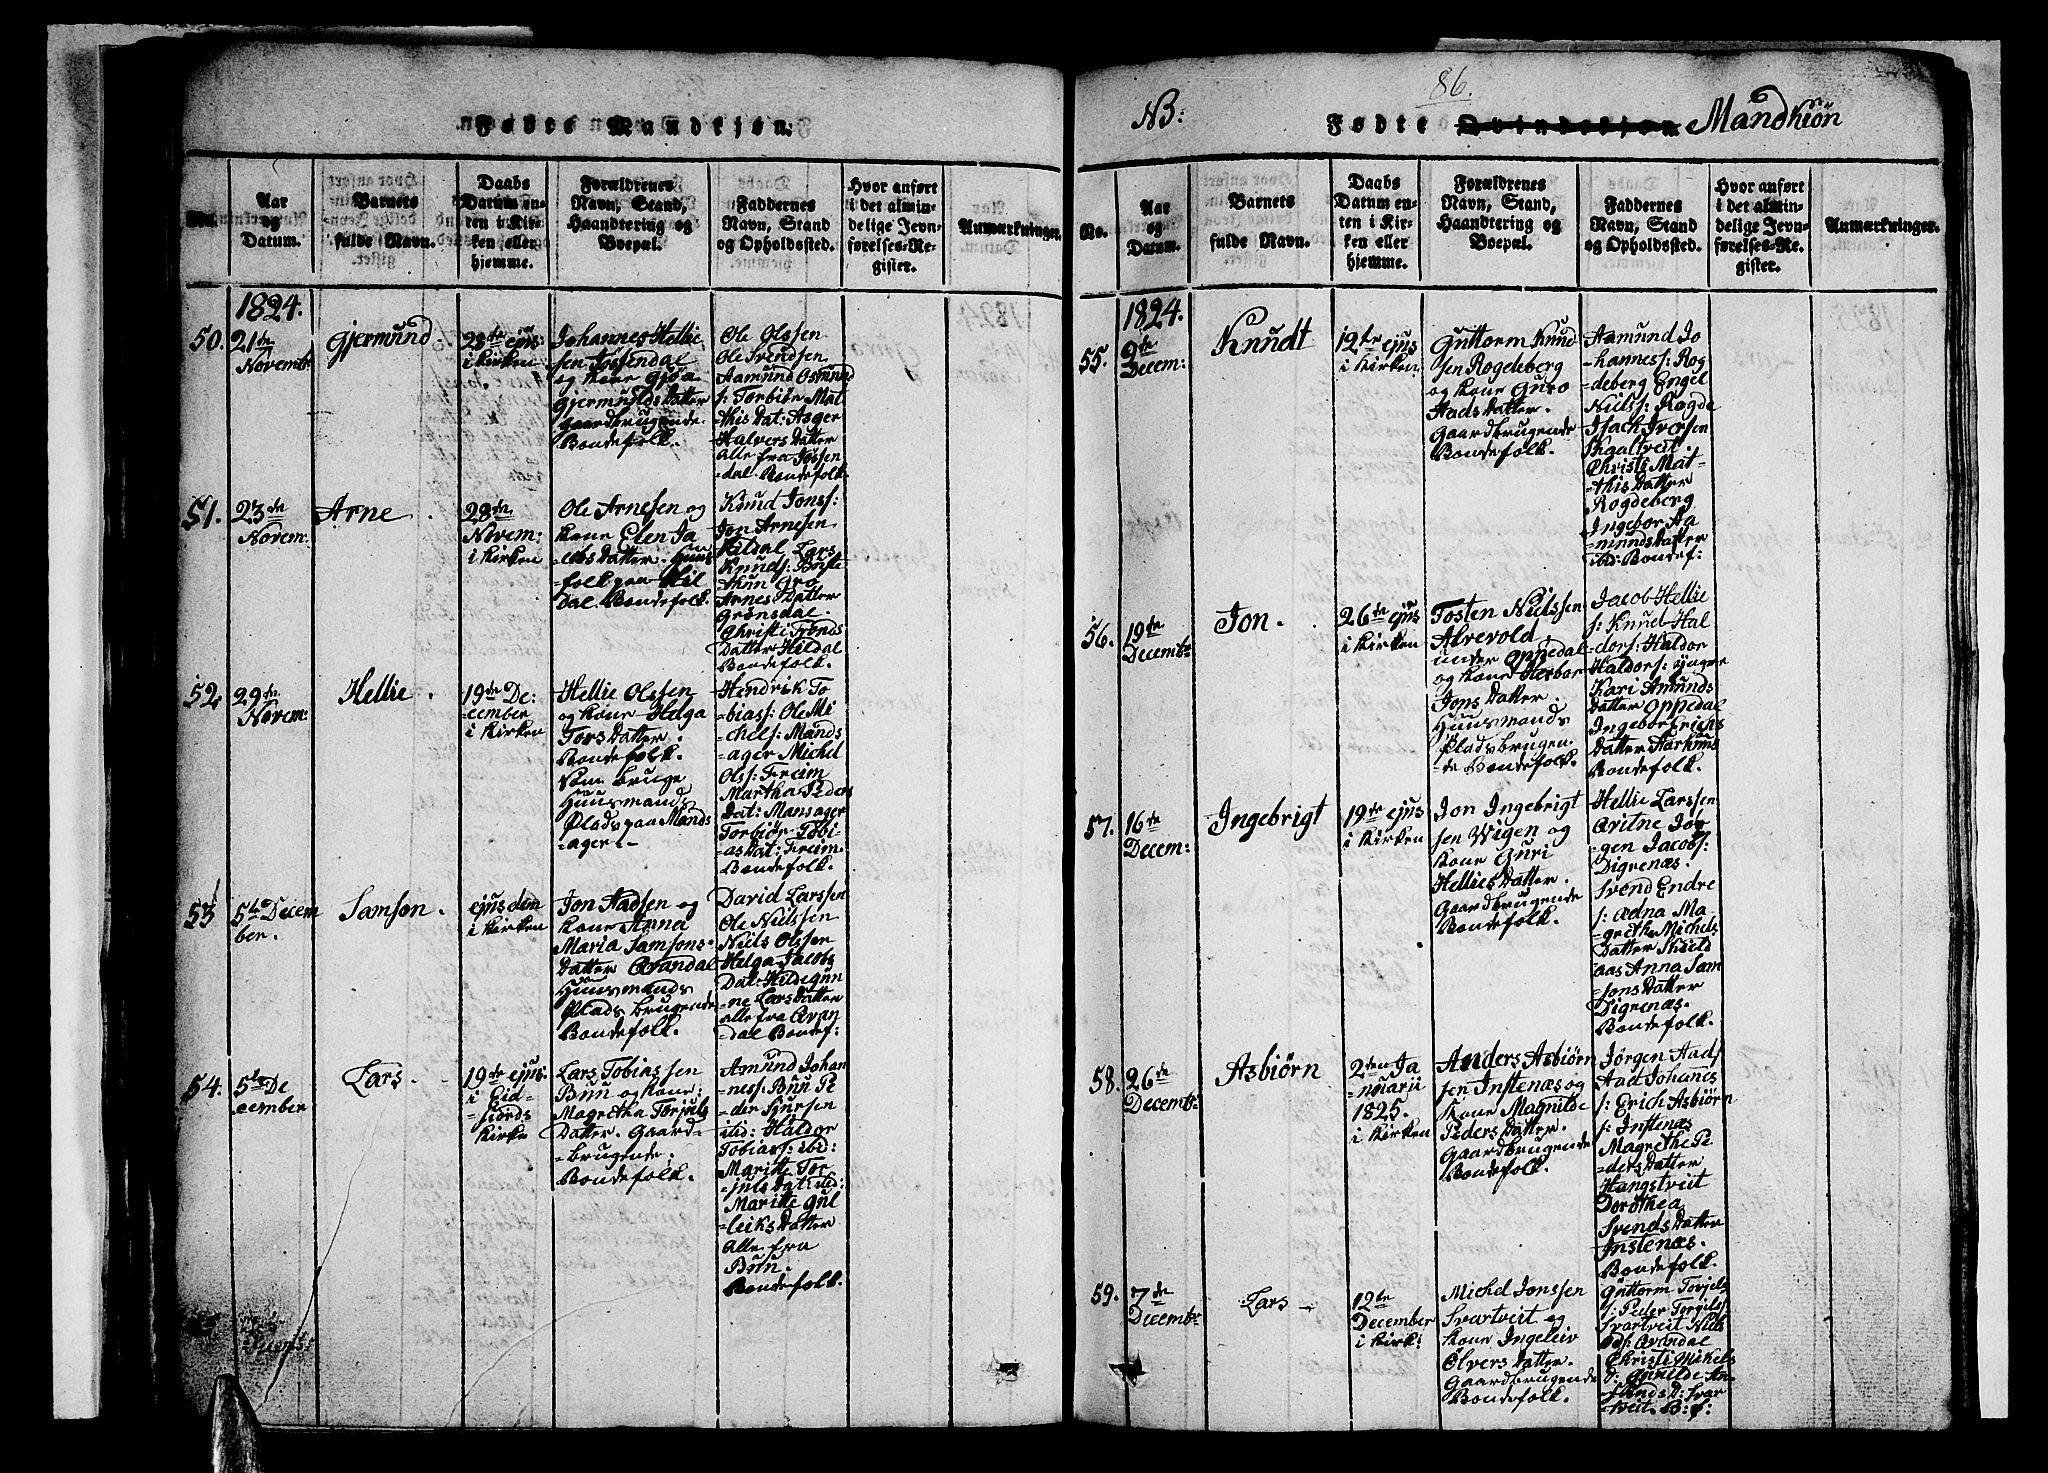 Fødte Mandkjøn.
No.
Aar
og
Datum.
Barnets
fulde Navn.
Daabs
Datum en-
ten i Kir-
ken eller
hjemme.
Forældrenes
Navn, Stand,
Haandtering og
Boepæl.
Faddernes
Navn, Stand
og Opholdssted.
Hvor anført
i det almin-
delige Jevn-
førelses-Re-
gister.
Anmærkninger.
1824.
50.
21de
Novemb:
Gjermund.
28de ejus:
i Kirken
Johannes Hellie
sen Jossendal
og kone Gjøa
Gjermunds Datter
Gaardbrugende
Bondefolk.
Ole Olssen
Ole Svendsen
Aamund Osmund
s: Torbiör Mat
this Dat: Asger
Halvers Datter
Alle fra Jössen
-dal. Bondefolk.
51.
23de
Novem:
Arne
28de
Novem:
i Kirken
Ole Arnesen og
kone Elen Ja
-cobs Datter. Huus
-folk paa Hil
dal. Bondefolk.
Knud Jonss:
Jon Arnesen
Hildal Lars
Knuds: Boste
-thun Gro
Arnes Datter
Grönsdal.
Christi Jons
Datter Hildal
Bondefolk.
52.
29de
Novem:
Hellie.
19de De:
-cember
i Kirken
Hellie Olssen
og kone Helga
Tors Datter.
Bondefolk.
Som bruge
Huusmands
Plads paa Mands
-ager.
Hendrik To
-biass: Ole Mi
-chels: Mands
-ager Michel
Olss: Freim
Martha Peders
Dat: Mansager
Torbiör Tobi-
-as Dat: Freim.
Bondefolk.
53
5te Decem
ber.
Samson.
ejusdem
i Kirken
Jon Aadsen og
kone Anna
Maria Samsons-
Datter Qvandal
Huusmands
Plads brugende
Bondefolk.
David Larssen
Ole Nielssen
Niels Olssen
Helga Jacobs
Dat: Hildegun
-ne Lars Datter
alle fra Qvan
dal Bondef:
54.
5te De
cember
Lars.
19de ejus.
i Eid-
-fiords
Kirke
Lars Tobiassen
Buu og kone:
Magretha Torjuls
Datter. Gaard-
-brugende.
Bondefolk.
Amund Johan
ness: Buu Pe
-der Siursen
ibid: Haldor
Tobiass: ibi:
Maritte Tor
-juls Dat: ibid:
Maritte Gul
-leiks Datter
Alle fra
Buu.
Bondefolk.
86.
NB:
Fødte Qvindekjøn Mandkiön
No.
Aar
og
Datum.
Barnets
fulde Navn.
Daabs
Datum en-
ten i Kir-
ken eller
hjemme.
Forældrenes
Navn, Stand,
Haandtering og
Boepæl.
Faddernes
Navn, Stand
og Opholdssted.
Hvor anført
i det almin-
delige Jevn-
førelses-Re-
gister.
Anmærkninger.
1824.
55.
9de
Decem:
Knudt
12te ejus
i Kirken
Guttorm Knud
sen Rogdeberg
og kone Guro
Aads Datter.
Gaardbrugende
Bondefolk.
Asmund Jo
-hanness: Rog
-deberg Engel
Niels: Rogde
Isach Iversen
Skaltveit
Christi Mat-
-this Datter
Rogdeberg
Ingebor Aa-
-munds Datter
ibid: Bondef:
56.
19de
Decembr
Jon.
26de ejus
i Kirken
Tosten Nielssen
Alvevold.
under Oppedal
og kone Herbor
Jons Datter.
Huusmands
Pladsbrugen-
-de Bondefolk.
Jacob Hellie
s: Knud Hal
dors: Haldor
Haldors: yngre
Kari Amunds
Datter Oppedal
Ingebor Erichs
Datter Aarhuus
Bondefolk.
57.
16de
Decem:
Ingebrigt
19de ejus
i Kirken
Jon Ingebrigt
sen Wigen og
kone Guri
Hellies Datter.
Gaardbrugende
Bondefolk.
Hellie Larssen
Qvitne Jör
gen Jacobs:
Digrenæs.
Svend Endre
s: Ædna Ma-
-grethe Michels
Datter Skield
aas Anna Sam
sons Datter
Digrenæs.
Bondefolk.
58.
26de
Decemb-
Asbiörn
2den Ja
nuarii
1825.
i Kirken
Anders Asbiörn
sen Instenæs og
kone Magnilde
Peders Datter.
Gaardbrugende
Bondefolk.
Jörgen Aads
Aad Johanes
s: Erich Asbiörn
s: Instenæs
Magrethe Pe
-ders Datter
Hangstveit
Dorothea
Svends Datter
Instenæs.
Bondefolk.
59.
7de
Decembr
Lars
12te
December
i Kirk:
Michel Jonssen
Svartveit og
kone Ingeleiv
Ölvers Datter.
Gaardbrugende
Bondefolk.
Guttorm Torjels
s: Peder Torgils
Svartveit Niels
Ads: Qvandal
Christi Mikels
D: Gunilde Am-
-unds D: Svar
-tveit. B: f: